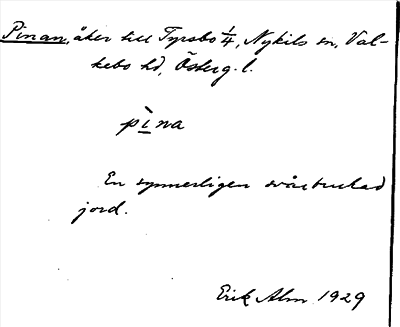 Pinan, åker till Tyrsbo 1/4, Nykils sn, Val-
kebo hd, Österg. l.
pìna
En synnerligen svårbrukad
jord.
Erik Alm 1929